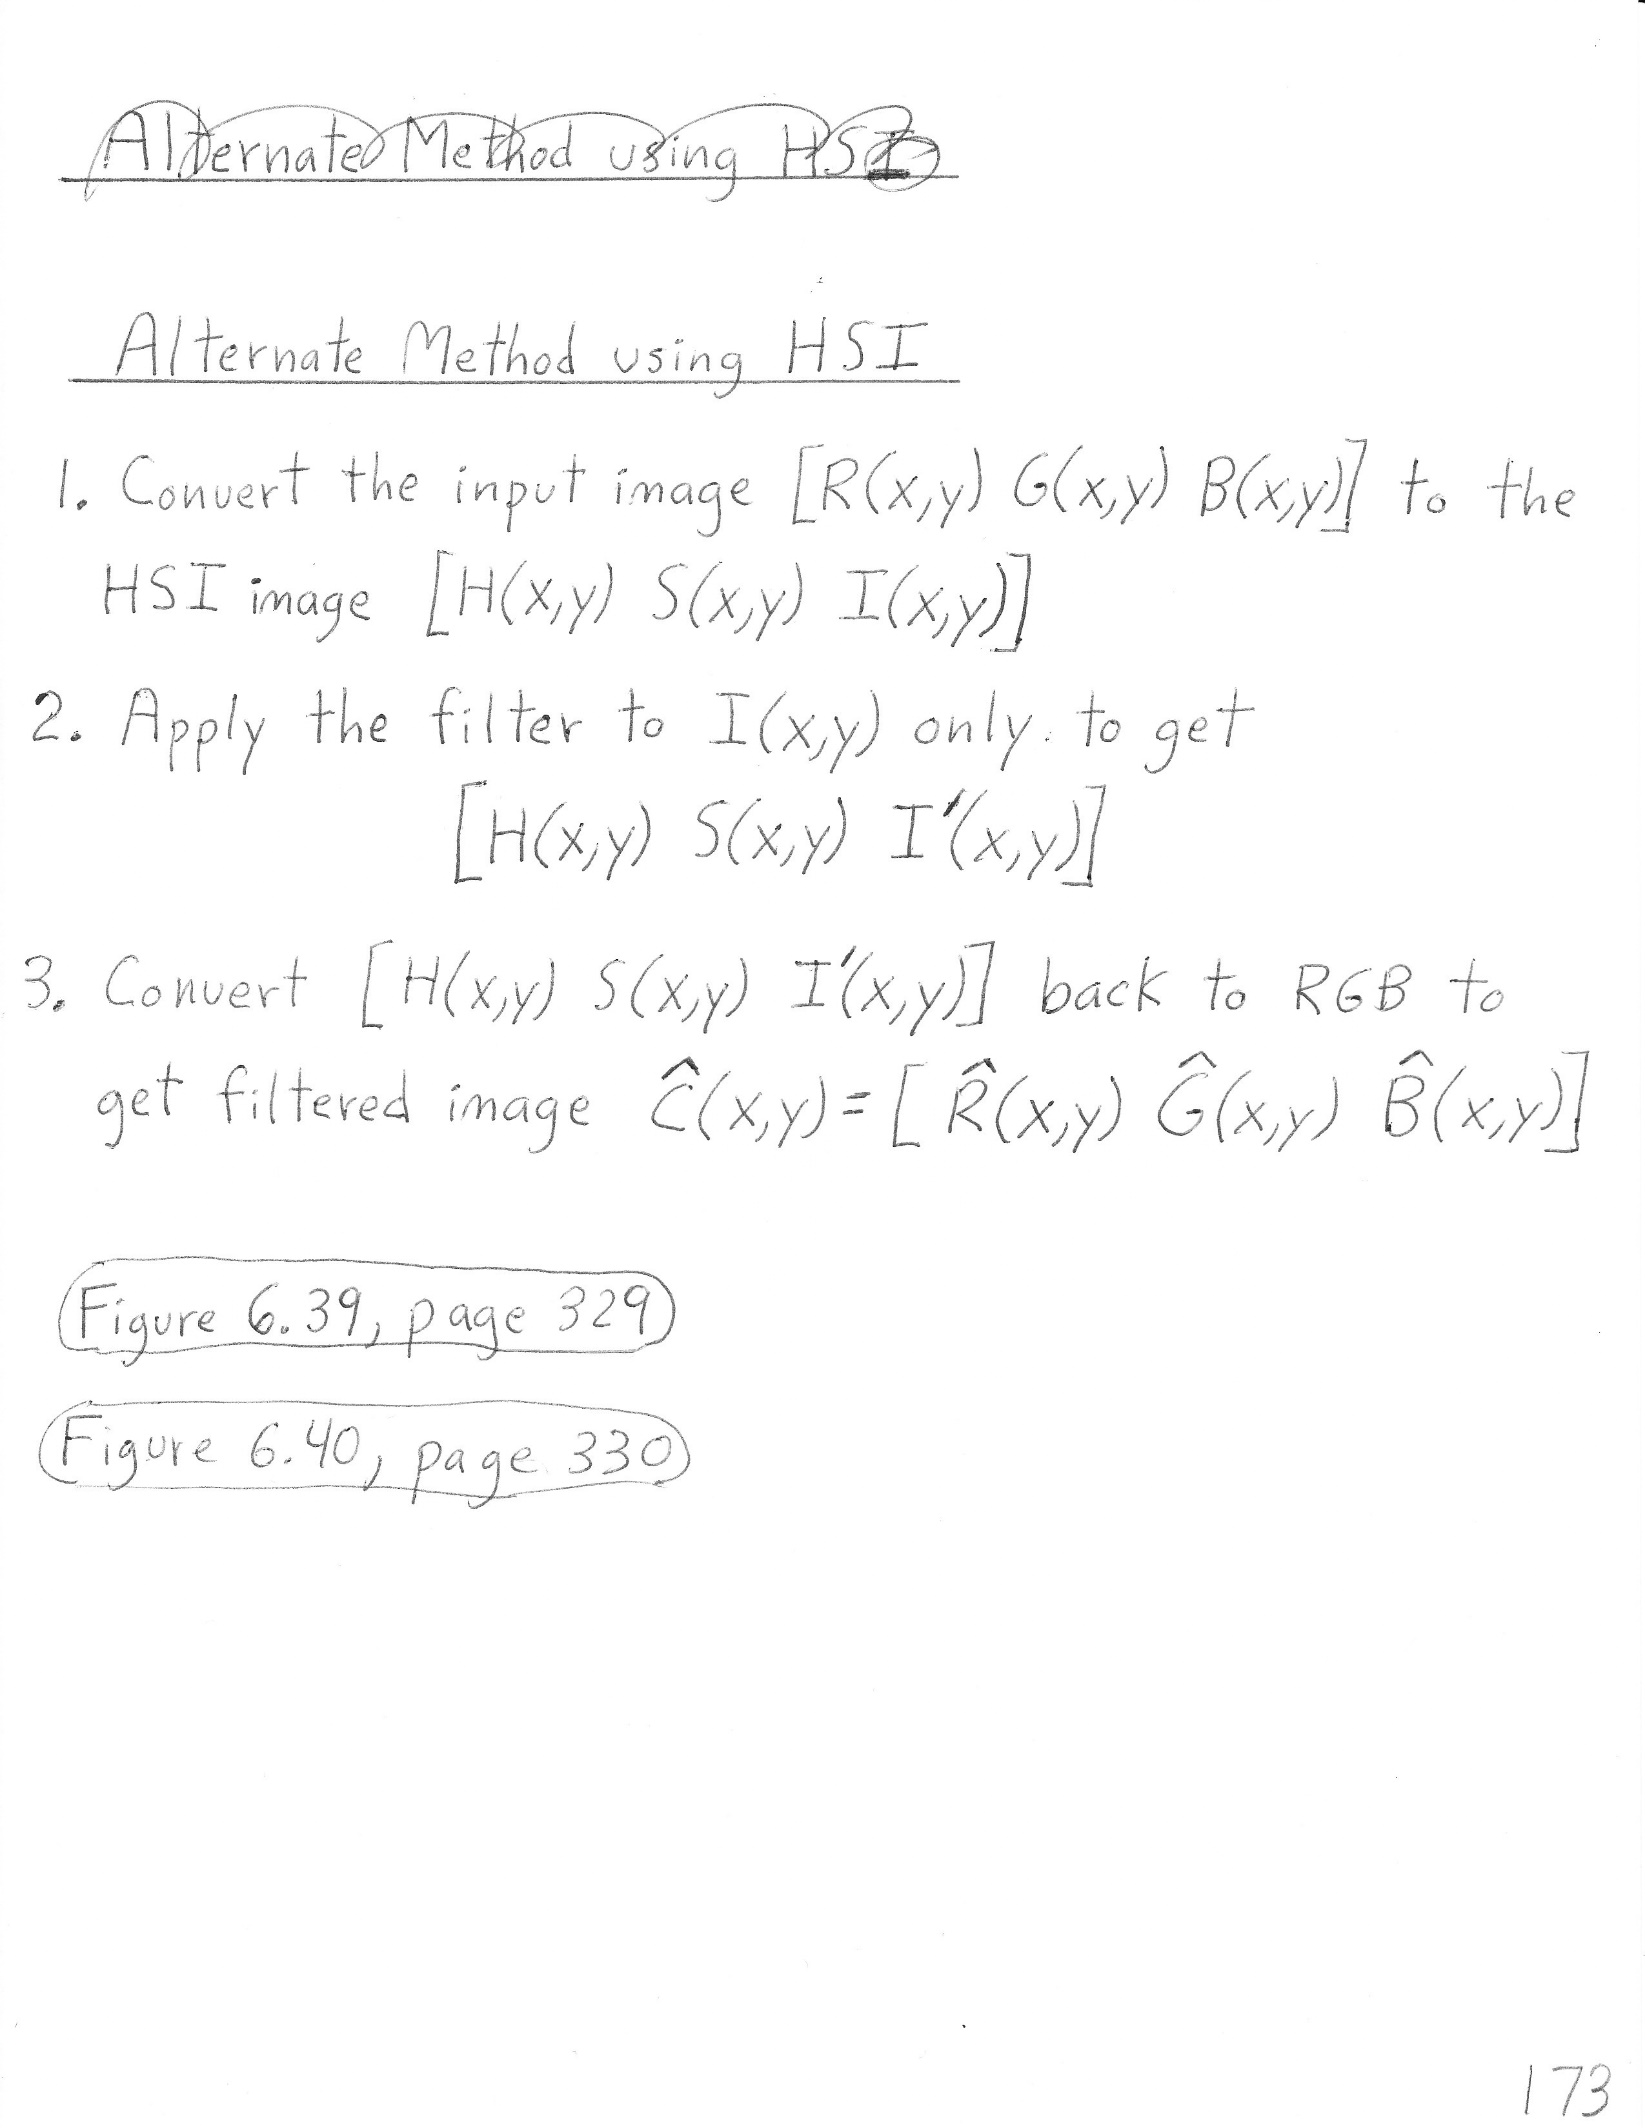 Alternate Method using HSI
Alternate Method using HSI
1. Convert the input image [R(x,y) G(x,y) B(x,y)] to the
HSI image [H(x,y) S(x,y) I(x,y)]
2. Apply the filter to I(x,y) only to get
[H(x,y) S(x,y) I'(x,y)]
3. Convert [H(x,y) S(x,y) I'(x,y)] back to RGB to
get filtered image Ĉ(x,y)=[R̂(x,y) Ĝ(x,y) B̂(x,y)]
Figure 6.39, page 329
Figure 6.40, page 330
173